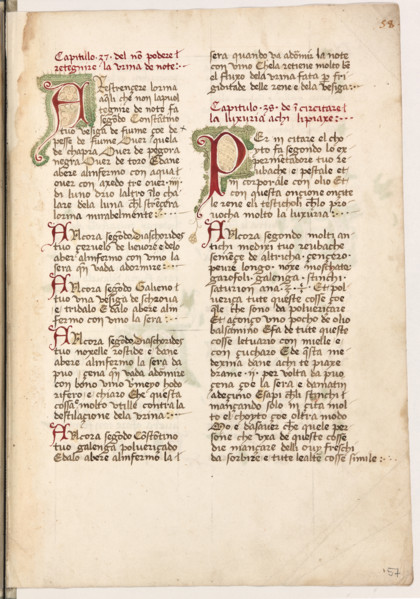 58
Capitullo .27. del nō podere l
retegnire la vrina de note:
A restrenzer lorina
aq̄lli chē non lapuol
tegnire de note fa
segōdo Constātino
tuo vesiga de fiume çoe de
pesse de fiume Ouer çuela
de chapra Ouer de pogoza
negra Ouer de toro Edane
abere almfermo con aqua l
ouer con axedo tre ouer iiij
di luno drio laltro ī lo cha
lare dela luna chl strēcera
lorina mirabelmente
Alcora segōdo Diaschorides
tuo cervelo de lievore e delo
aber almfermo con vino la
sera q̄n vada adormire
Alcora segōdo Galieno l
tuo vna vesiga de
e tridalo E dalo abere alm
fermo con vino la sera
Alcora segōdo Diaschorides
tuo noxelle rostide e dane
abere almfermo la sera da
puo çena q̄n vada adōmire
con bono vino vmepo hodo
rifero e chiaro Che questa
cossa molto vtille contra la
destilacione dela vrina
Alcora segōdo Costātino
tuo galenga polveriçado
Edalo abere almfermo la l
sera quando va adōmi la note
con vino Chela retiene molto bē
el fluxo dela vrina fata p fri
giditade delle rene e dela vesiga
Capitulo .38. de īcitare l
la luxuria achi lipiaxe
Per in citare el cho
yto fa segondo lo ex
permētadore tuo ze
ubache e pestale et
in corporalle con olio Et
con questa onçione onçite
le rene eli testicholi chlo pro
vocha molto la luxuria
Alcora segondo molti an
tichi medixi tuo zeubache
semēçe de altricha, çençero
pevere longo, noxe moschate
garofoli galenga stinchi
saturion ana Et pol
veriça tute queste cosse çoe
q̄lle che sono da polveriçare
Et aconço vno pocho de olio
balsamino Efa de tute queste
cosse letuario con mielle e
con çucharo Ede q̄sta me
dexina dane achi te piaxe
drame .iij. per volta da puo
çena çoe la sera e damatin
adeçuno Esapi ch̄lli stinchi l
mançando sollo in çita mol
to el choyto çoe oltra modo
Mo e dasaver che quele per
sone che vxa de queste cosse
die mançare delli ouy freschi
da sorbire e tute lealtre cosse simile
57